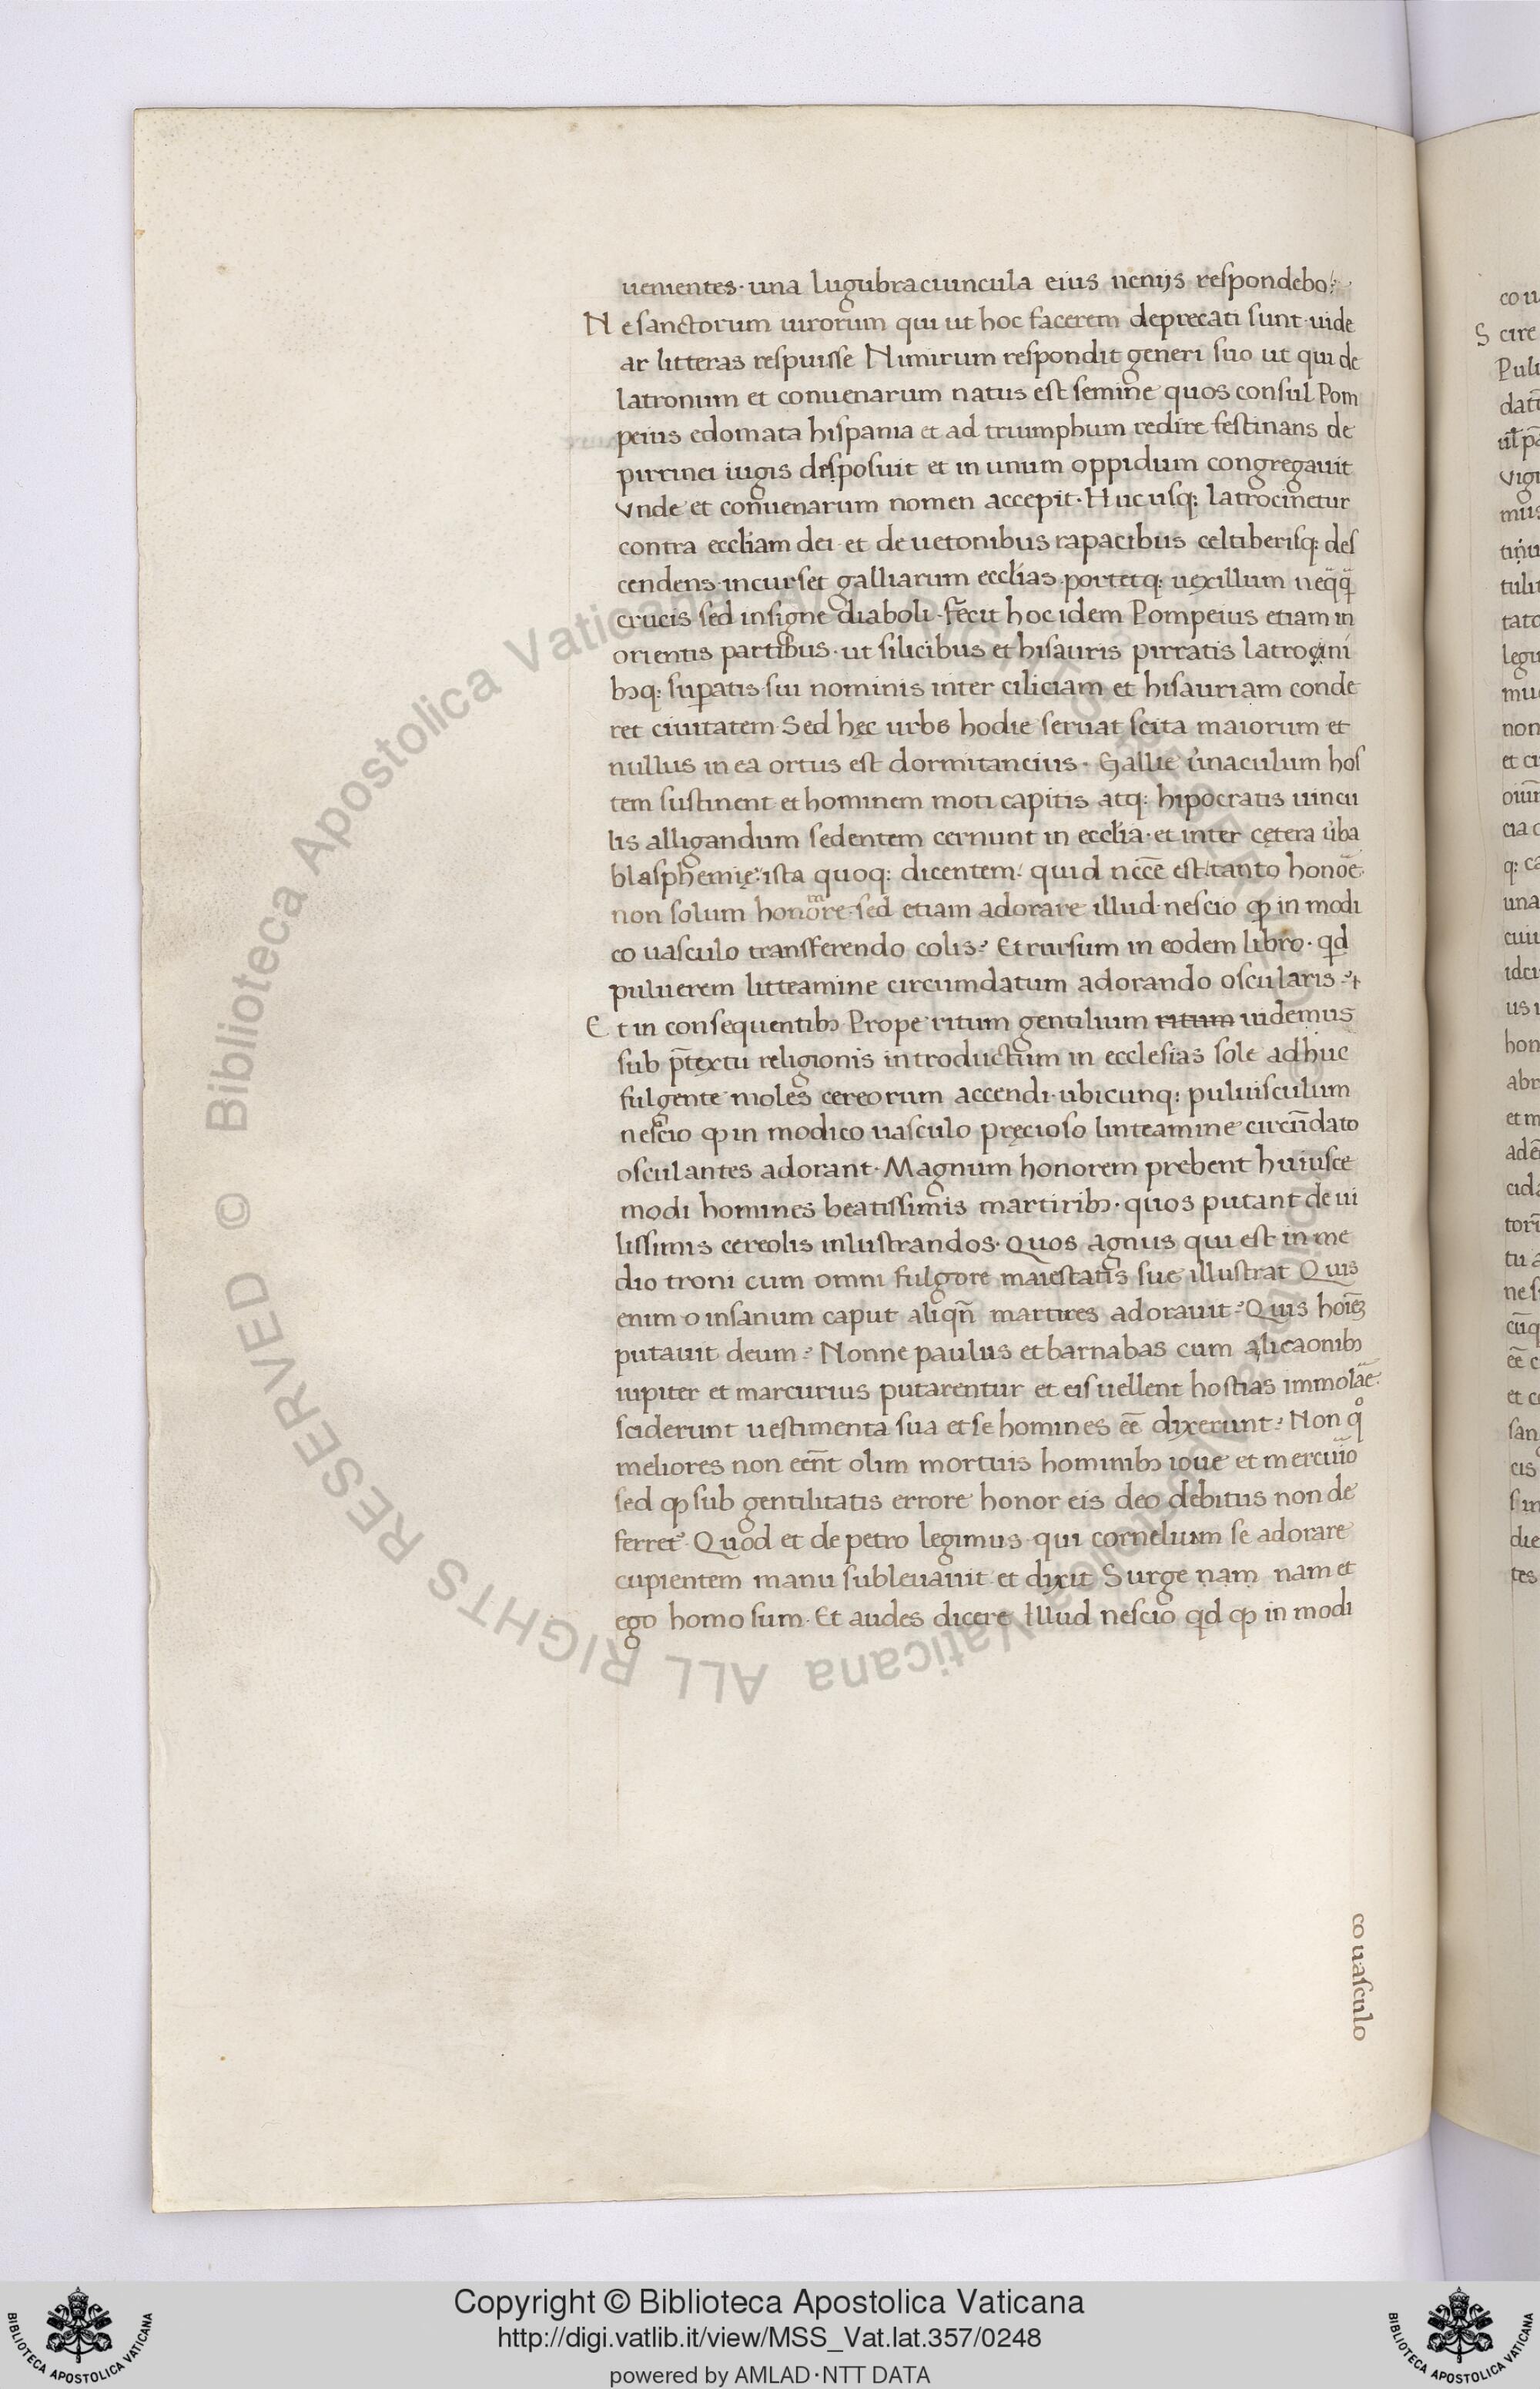 uenientes· una lugubraciuncula eius nenijs respondebo
N e sanctorum uirorum qui ut hoc facerem deprecati sunt uide
ar litteras respuisse Nimirum respondit generi suo ut qui de
latronum et conuenarum natus est semine quos consul Pom
peius edomata hispania et ad triumphum redire festinans de
pirrinei iugis disposuit et in unum oppidum congregauit
vnde et conuenarum nomen accepit· Huc usq; latrocinetur
contra eccliam dei et de uetonibus rapacibus celtiberisq; des
cendens incurset galliarum ecclias portetq; uexillum neq̈q̈
crucis sed insigne diaboli· fecit hoc idem Pompeius etiam in
orientis partibus· ut silicibus et hisauris pirratis latrocini
bꝫq; suꝑatis sui nominis inter ciliciam et hisauriam conde
ret ciuitatem Sed hęc urbs hodie seruat scita maiorum et
nullus in ea ortus est dormitancius· Gallie u̓naculum hos
tem sustinent et hominem moti capitis atq; hipocratis uincu
lis alligandum sedentem cernunt in ecclia· et inter cętera u̓ba
blasphemię ista quoq; dicentem quid necc̄e est tanto honōe
non solum honore sed etiam adorare illud nescio qp in modi
co uasculo transferendo colis? Et rursum in eodem libro· qd̄
puluerem litteamine circumdatum adorando oscularis?
E t in consequentibꝫ Prope ritum gentilium ritum uidemus
sub p̄textu religionis introductum in ecclesias sole adhuc
fulgente moles cereorum accendi ubicunq; puluisculum
nescio qp in modico uasculo pręcioso linteamine circūdato
osculantes adorant· Magnum honorem prebent huiusce
modi homines beatissimis martiribꝫ· quos putant de ui
lissimis cereolis inlustrandos· Quos agnus qui est in me
dio troni cum omni fulgore maiestatis sue illustrat Quis
enim o insanum caput aliqn̄ martires adorauit? Quis hoīēʒ
putauit deum? Nonne paulus et barnabas cum alicaonibꝫ
iupiter et marcurius putarentur et eis uellent hostias immolāe
sciderunt uestimenta sua et se homines eē dixerunt? Non qͦ
meliores non eēnt olim mortuis hominibꝫ ioue et mercurio
sed qp sub gentilitatis errore honor eis deo debitus non de
ferret Quod et de petro legimus qui cornelium se adorare
cupientem manu subleuauit et dixit Surge nam nam et
ego homo sum· Et audes dicere Illud nescio qd qp in modi
co uasculo
© Biblioteca Apostolica Vaticana ALL RIGHTS RESERVED
Copyright © Biblioteca Apostolica Vaticana
http://digi.vatlib.it/view/MSS_Vat.lat.357/0248
powered by AMLAD·NTT DATA
BIBLIOTECA APOSTOLICA VATICANA
BIBLIOTECA APOSTOLICA VATICANA